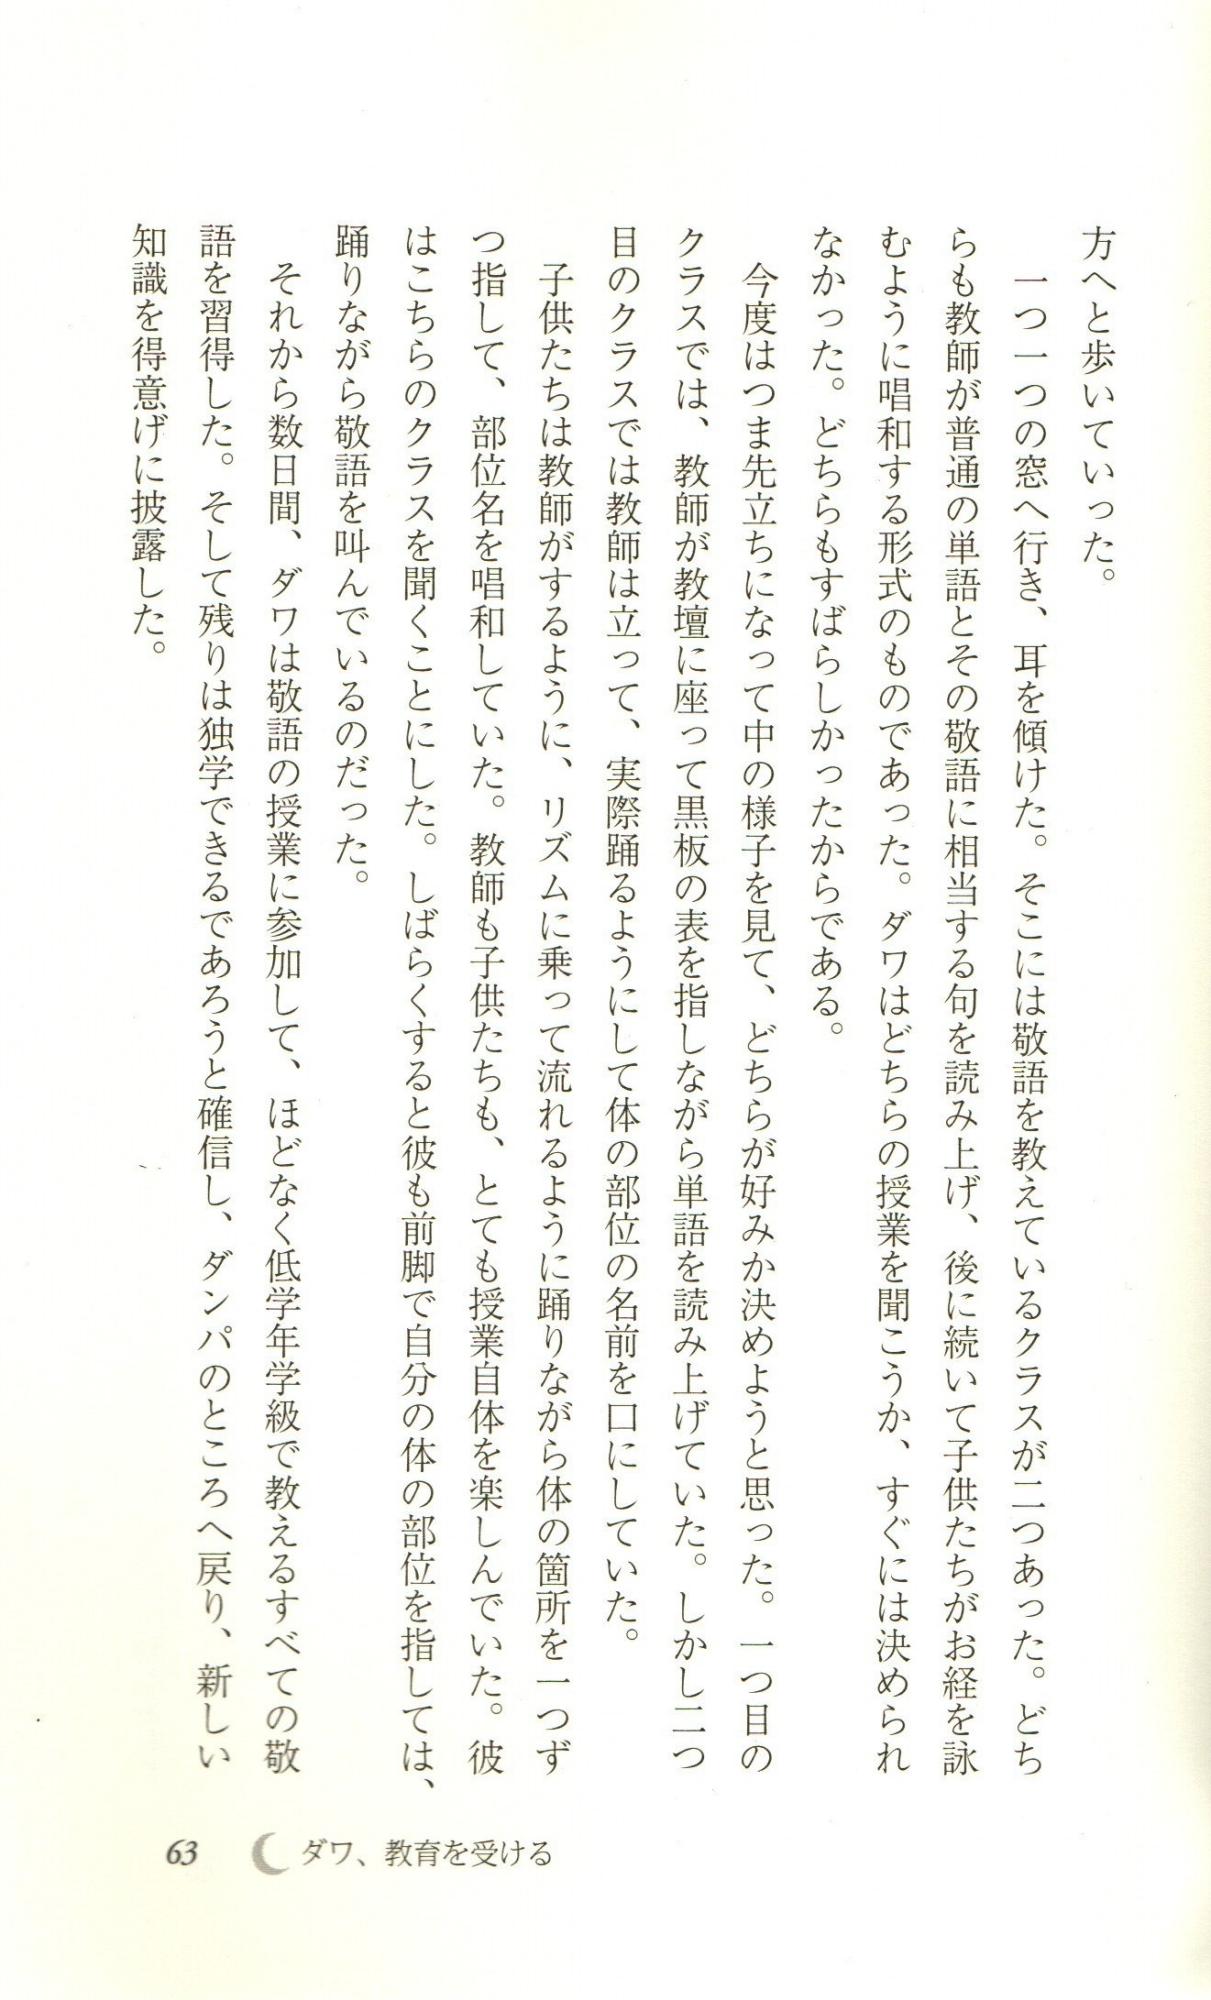 方へと歩いていった。
一つ一つの窓へ行き、耳を傾けた。そこには敬語を教えているクラスが二つあった。どち
らも教師が普通の単語とその敬語に相当する句を読み上げ、後に続いて子供たちがお経を詠
むように唱和する形式のものであった。ダワはどちらの授業を聞こうか、すぐには決められ
なかった。どちらもすばらしかったからである。
今度はつま先立ちになって中の様子を見て、どちらが好みか決めようと思った。一つ目の
クラスでは、教師が教壇に座って黒板の表を指しながら単語を読み上げていた。しかし二つ
目のクラスでは教師は立って、実際踊るようにして体の部位の名前を口にしていた。
子供たちは教師がするように、リズムに乗って流れるように踊りながら体の箇所を一つず
つ指して、部位名を唱和していた。教師も子供たちも、とても授業自体を楽しんでいた。彼
はこちらのクラスを聞くことにした。しばらくすると彼も前脚で自分の体の部位を指しては、
踊りながら敬語を叫んでいるのだった。
それから数日間、ダワは敬語の授業に参加して、ほどなく低学年学級で教えるすべての敬
語を習得した。そして残りは独学できるであろうと確信し、ダンパのところへ戻り、新しい
知識を得意げに披露した。
63 ダワ、教育を受ける